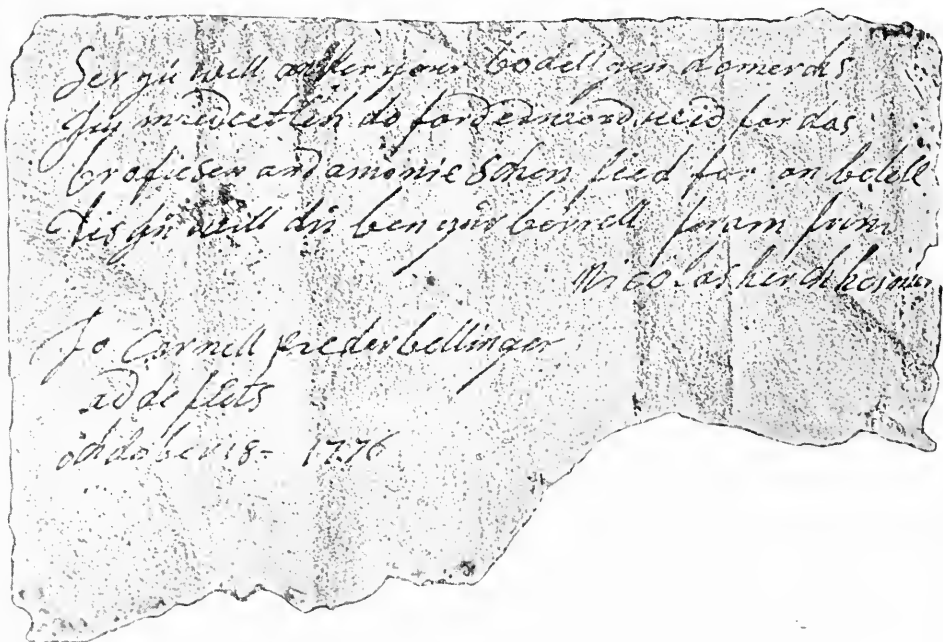 Ser yu will orter your bodellyen do merchs
Immiedietlih do fordedword weid for das
brofiesen and amonieschen fied for on betell
dis yu will dis ben yur berrell foram frind
Nicolas herchheimer
To Cornell pieder bellinger
ad de flets
ochdober 18 - 1776